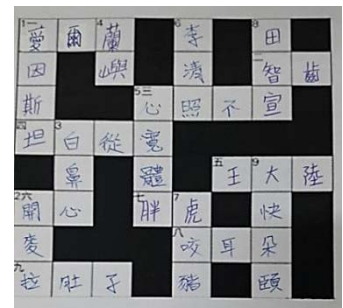 1一愛爾4蘭 6李 8田
因 嶼 清 二智齒
斯 5三心照不宣
四坦3白從寬
鼻 體 五王9大陸
2六開心 七胖7虎 快
麥 八咬耳朵
九拉肚子 豬 頤